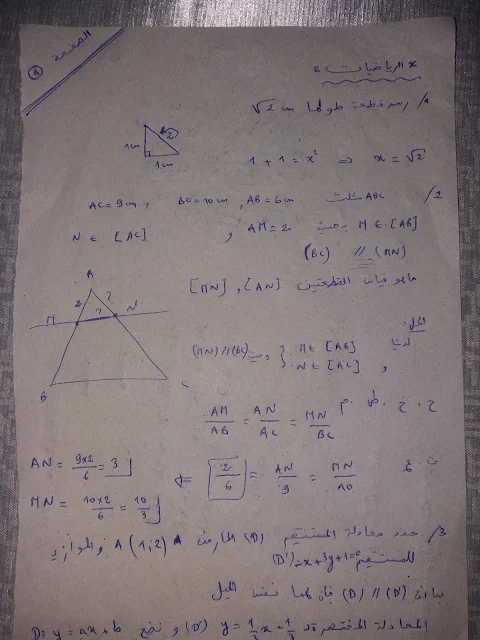 الصفحة 1
* الرياضيات :
1/ رسم قطعة طولها √2 cm
1cm √2
1cm
1 + 1 = x² ⇒ x = √2
2/ ABC مثلث AB = 6cm , BC = 10cm , AC = 9cm
M ∈ [AB] بحيث AM = 2 و N ∈ [AC]
(MN) // (BC)
ماهو قياس القطعتين [AN] , [MN]
A
2 ?
M ? N
B C
الحل:
لدينا M ∈ [AB]
و N ∈ [AC] } وحيث (MN) // (BC)
ح. خ. ط. م
AM/AB = AN/AC = MN/BC
ت. ع
2/6 = AN/9 = MN/10 ⇐
AN = 9×2/6 = 3
MN = 10×2/6 = 10/3
3/ حدد معادلة المستقيم (D) المار من A(1;2) والموازي
للمستقيم (D') -x+3y+1=0
بما ان (D) // (D') فإن لهما نفس الميل
المعادلة المختصرة (D') y = 1/3 x - 1/3 و نضع D: y = ax + b